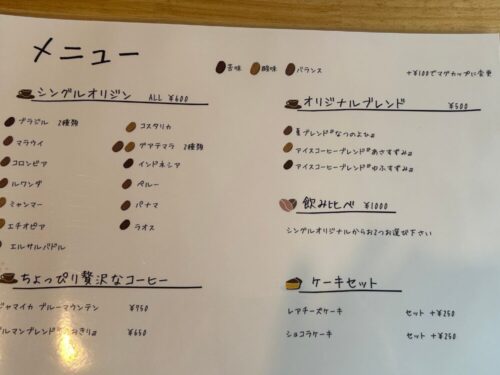 メニュー
苦味 酸味 バランス
+¥100でマグカップに変更
シングルオリジン ALL ¥600
ブラジル 2種類
マラウイ
コロンビア
ルワンダ
ミャンマー
エチオピア
エルサルバドル
コスタリカ
グアテマラ 2種類
インドネシア
ペルー
パナマ
ラオス
ちょっぴり贅沢なコーヒー
ジャマイカ ブルーマウンテン ¥950
¥650
オリジナルブレンド ¥500
夏ブレンド〝なつのよひ〟
アイスコーヒーブレンド〝あさすずみ〟
アイスコーヒーブレンド〝ゆふすずみ〟
飲み比べ ¥1000
シングルオリジナルからお2つお選び下さい
ケーキセット
レアチーズケーキ セット +¥250
ショコラケーキ セット +¥250